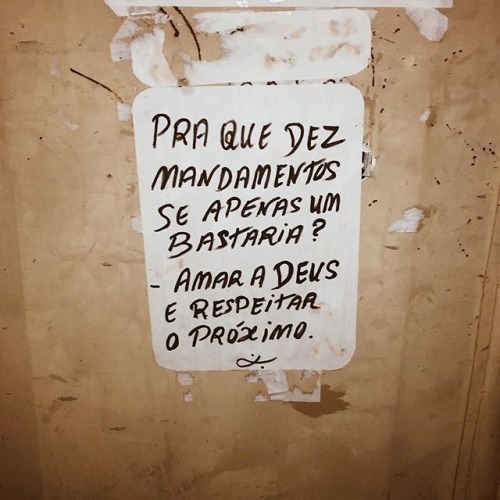 PRA QUE DEZ
MANDAMENTOS
SE APENAS UM
BASTARIA?
- AMAR A DEUS
E RESPEITAR
O PRÓXIMO.